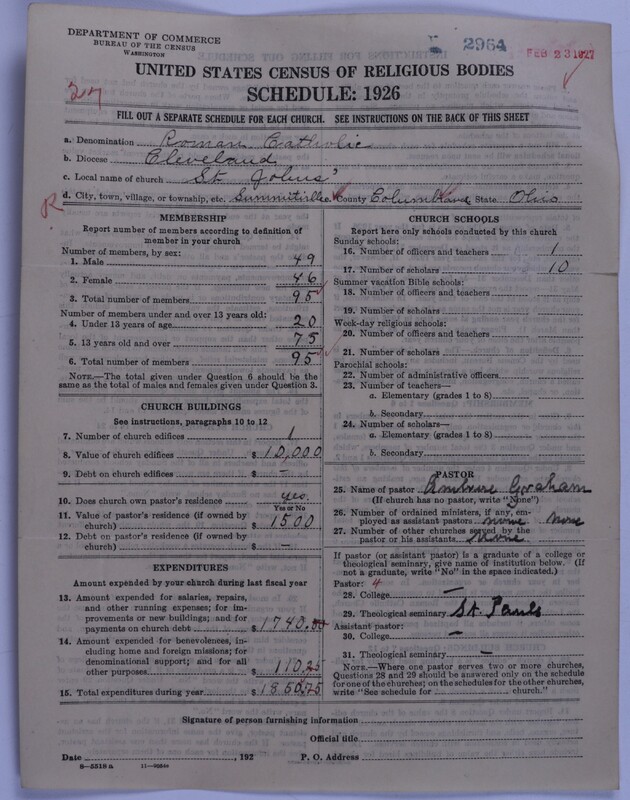 DEPARTMENT OF COMMERCE
BUREAU OF THE CENSUS
WASHINGTON
2964
FEB 23 1927
UNITED STATES CENSUS OF RELIGIOUS BODIES
SCHEDULE: 1926
27
FILL OUT A SEPARATE SCHEDULE FOR EACH CHURCH. SEE INSTRUCTIONS ON THE BACK OF THIS SHEET
a. Denomination Roman Catholic
b. Diocese Cleveland
c. Local name of church St Johns'
R d. City, town, village, or township, etc. Summitville County Columbiana State Ohio
MEMBERSHIP
Report number of members according to definition of
member in your church
Number of members, by sex:
1. Male 49
2. Female 46
3. Total number of members 95
Number of members under and over 13 years old:
4. Under 13 years of age 20
5. 13 years old and over 75
6. Total number of members 95
NOTE.—The total given under Question 6 should be the
same as the total of males and females given under Question 3.
CHURCH BUILDINGS
See instructions, paragraphs 10 to 12
7. Number of church edifices 1
8. Value of church edifices $10,000
9. Debt on church edifices $ —
10. Does church own pastor's residence yes
Yes or No
11. Value of pastor's residence (if owned by
church) $ 1500
12. Debt on pastor's residence (if owned by
church) $ —
EXPENDITURES
Amount expended by your church during last fiscal year
13. Amount expended for salaries, repairs,
and other running expenses; for im-
provements or new buildings; and for
payments on church debt $1740.50
14. Amount expended for benevolences, in-
cluding home and foreign missions; for
denominational support; and for all
other purposes $ 110.25
15. Total expenditures during year $1850.75
CHURCH SCHOOLS
Report here only schools conducted by this church
Sunday schools:
16. Number of officers and teachers 1
17. Number of scholars 10
Summer vacation Bible schools:
18. Number of officers and teachers
19. Number of scholars
Week-day religious schools:
20. Number of officers and teachers
21. Number of scholars
Parochial schools:
22. Number of administrative officers
23. Number of teachers—
a. Elementary (grades 1 to 8)
b. Secondary
24. Number of scholars—
a. Elementary (grades 1 to 8)
b. Secondary
PASTOR
25. Name of pastor Ambrose Graham
(If church has no pastor, write "None")
26. Number of ordained ministers, if any, em-
ployed as assistant pastors none none
27. Number of other churches served by the
pastor or his assistants none
If pastor (or assistant pastor) is a graduate of a college or
theological seminary, give name of institution below. (If
not a graduate, write "No" in the space indicated.)
Pastor: 4
28. College —
29. Theological seminary St. Pauls
Assistant pastor:
30. College —
31. Theological seminary —
NOTE.—Where one pastor serves two or more churches,
Questions 28 and 29 should be answered only on the schedule
for one of the churches; on the schedules for the other churches,
write "See schedule for church."
Signature of person furnishing information
Official title
Date , 192 P. O. Address
8—5518 a